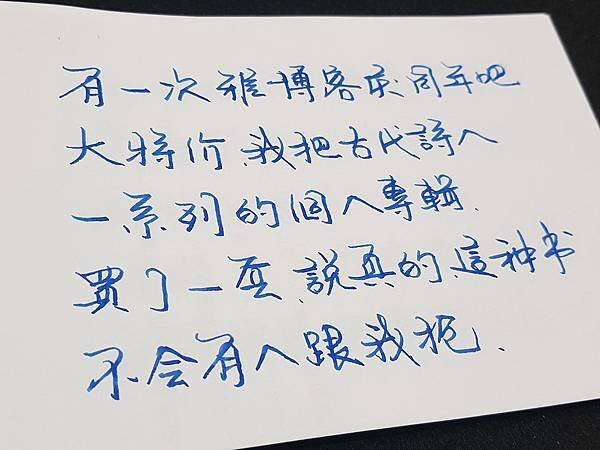 有一次雅博客來周年吧
大特价,我把古代詩人
一系列的個人專輯.
買了一套,說真的,這种书
不会有人跟我抢.